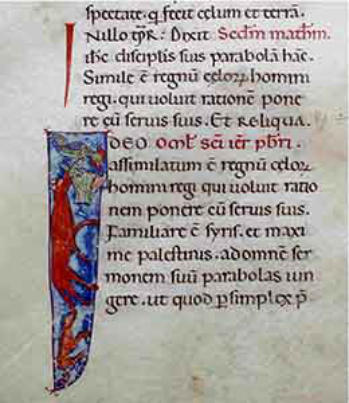 spectate. q̅ fecit celum et terrā.
Nullo tp̄r: Dixit Secdm̄ mathm̄.
ihc discipłis suis parabolā hāc.
Simile ē regnū celoꝝ homini
regi. qui uoluit rationē pone
re cū seruis suis. Et Reliqua.
IDEO Omł sc̄i ier̄ pbr̄i.
assimilatum ē regnū celoꝝ
homini regi qui uoluit ratio
nem ponere cū seruis suis.
Familiare ē syris. et maxi
me palestinis. ad omnē ser
monem suū parabolas iun
gere. ut quod ꝑ simplex p̄